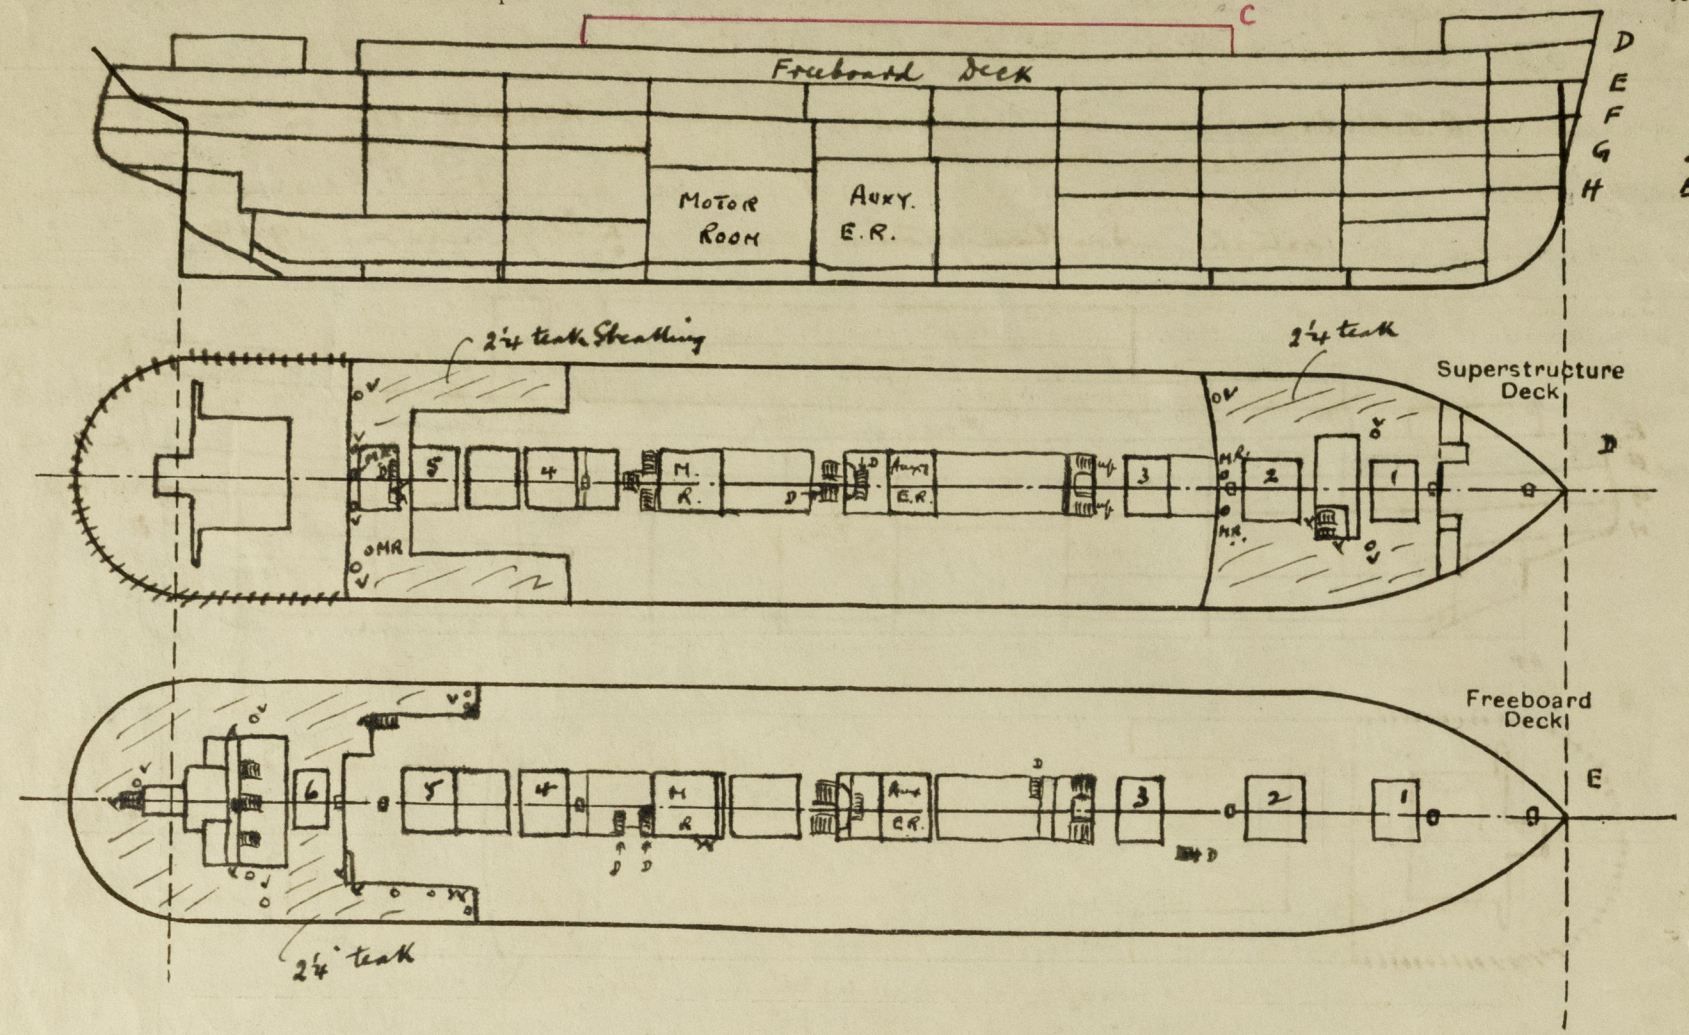 C
D
Freeboard Deck
E
F
G
H
MOTOR
ROOM
AUXY.
E.R.
2¼ teak Sheathing
2¼ teak
Superstructure
Deck
D
V
V
V
MR
5
4
M.
R.
D
D
Auxy
E.R.
up
up
3
MR.
MR.
2
1
V
V
V
MR
V
Freeboard
Deck
E
V
V
V
6
5
4
M
R
D
D
Aux
E.R.
D
3
2
1
D
2¼" teak